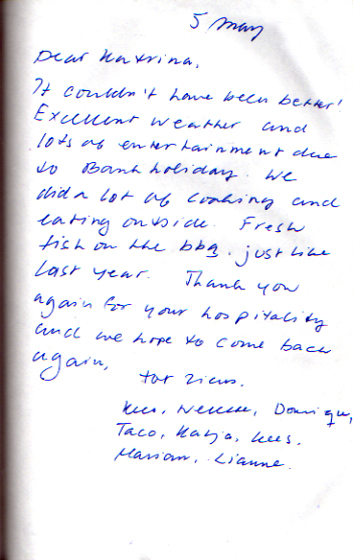 5 May
Dear Katrina,
It couldn't have been better!
Excellent weather and
lots of entertainment due
to Bank holiday. We
did a lot of cooking and
eating outside. Fresh
fish on the bbq. just like
last year. Thank you
again for your hospitality
and we hope to come back
again,
tot ziens.
Dominique,
Taco, Katja, Kees,
Marian, Lianne.